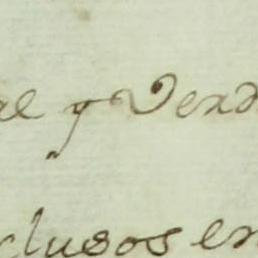 al y Verd
clusos en